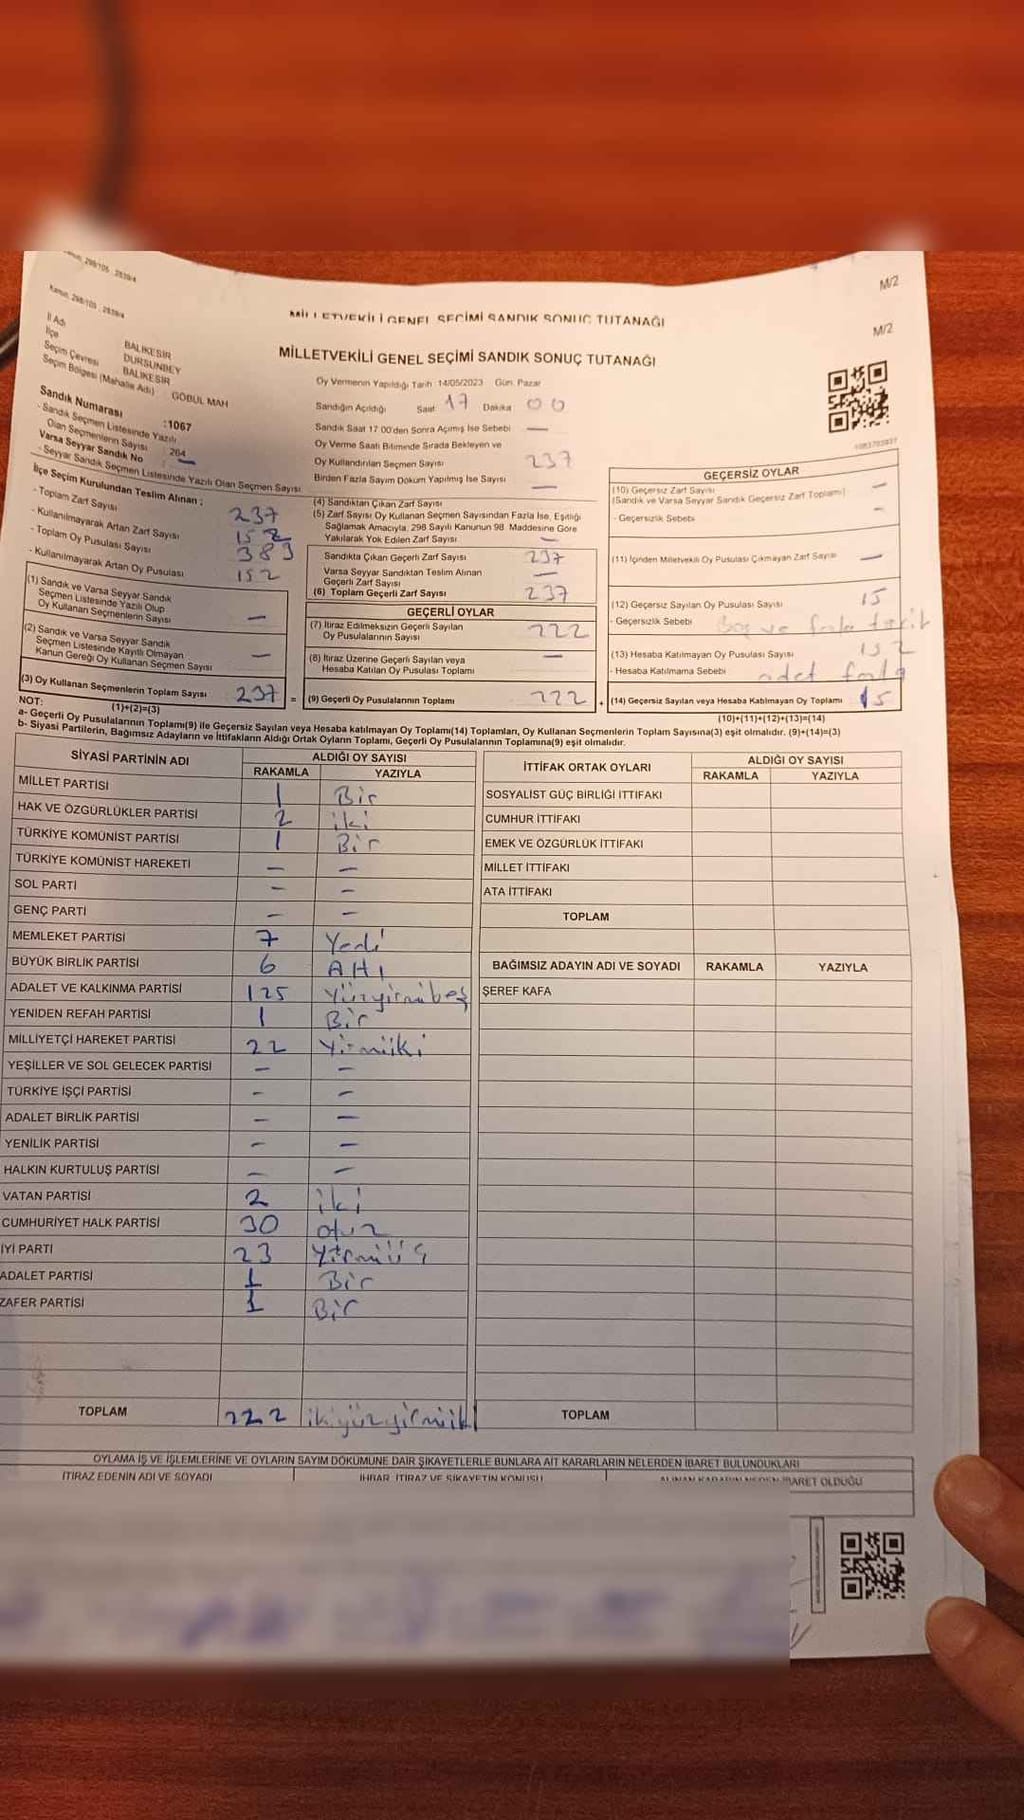 M/2
MİLLETVEKİLİ GENEL SEÇİMİ SANDIK SONUÇ TUTANAĞI
M/2
MİLLETVEKİLİ GENEL SEÇİMİ SANDIK SONUÇ TUTANAĞI
İl Adı BALIKESİR
İlçe DURSUNBEY
Seçim Çevresi BALIKESİR
Seçim Bölgesi (Mahalle Adı) GÖBÜL MAH
Sandık Numarası :1067
- Sandık Seçmen Listesinde Yazılı Olan Seçmenlerin Sayısı : 264
Varsa Seyyar Sandık No : —
- Seyyar Sandık Seçmen Listesinde Yazılı Olan Seçmen Sayısı
Oy Vermenin Yapıldığı Tarih :14/05/2023 Gün: Pazar
Sandığın Açıldığı Saat 17 Dakika 00
Sandık Saat 17.00'den Sonra Açımış İse Sebebi —
Oy Verme Saati Bitiminde Sırada Bekleyen ve
Oy Kullandırılan Seçmen Sayısı 237
Birden Fazla Sayım Döküm Yapılmış İse Sayısı —
İlçe Seçim Kurulundan Teslim Alınan ;
- Toplam Zarf Sayısı 237
- Kullanılmayarak Artan Zarf Sayısı 152
- Toplam Oy Pusulası Sayısı 389
- Kullanılmayarak Artan Oy Pusulası 152
(1) Sandık ve Varsa Seyyar Sandık
Seçmen Listesinde Yazılı Olup
Oy Kullanan Seçmenlerin Sayısı —
(2) Sandık ve Varsa Seyyar Sandık
Seçmen Listesinde Kayıtlı Olmayan
Kanun Gereği Oy Kullanan Seçmen Sayısı —
(3) Oy Kullanan Seçmenlerin Toplam Sayısı 237 =
(1)+(2)=(3)
(4) Sandıktan Çıkan Zarf Sayısı
(5) Zarf Sayısı Oy Kullanan Seçmen Sayısından Fazla İse, Eşitliği
Sağlamak Amacıyla, 298 Sayılı Kanunun 98. Maddesine Göre
Yakılarak Yok Edilen Zarf Sayısı —
Sandıkta Çıkan Geçerli Zarf Sayısı 237
Varsa Seyyar Sandıktan Teslim Alınan
Geçerli Zarf Sayısı —
(6) Toplam Geçerli Zarf Sayısı 237
GEÇERLİ OYLAR
(7) İtiraz Edilmeksizin Geçerli Sayılan
Oy Pusulalarının Sayısı 222
(8) İtiraz Üzerine Geçerli Sayılan veya
Hesaba Katılan Oy Pusulası Toplamı —
(9) Geçerli Oy Pusulalarının Toplamı 222 +
GEÇERSİZ OYLAR
(10) Geçersiz Zarf Sayısı —
(Sandık ve Varsa Seyyar Sandık Geçersiz Zarf Toplamı)
- Geçersizlik Sebebi —
(11) İçinden Milletvekili Oy Pusulası Çıkmayan Zarf Sayısı —
(12) Geçersiz Sayılan Oy Pusulası Sayısı 15
- Geçersizlik Sebebi Boş ve fazla tercih
(13) Hesaba Katılmayan Oy Pusulası Sayısı 152
- Hesaba Katılmama Sebebi adet fazla
(14) Geçersiz Sayılan veya Hesaba Katılmayan Oy Toplamı 15
(10)+(11)+(12)+(13)=(14)
NOT:
a- Geçerli Oy Pusulalarının Toplamı(9) ile Geçersiz Sayılan veya Hesaba katılmayan Oy Toplamı(14) Toplamları, Oy Kullanan Seçmenlerin Toplam Sayısına(3) eşit olmalıdır. (9)+(14)=(3)
b- Siyasi Partilerin, Bağımsız Adayların ve İttifakların Aldığı Ortak Oyların Toplamı, Geçerli Oy Pusulalarının Toplamına(9) eşit olmalıdır.
SİYASİ PARTİNİN ADI ALDIĞI OY SAYISI
RAKAMLA YAZIYLA
MİLLET PARTİSİ 1 Bir
HAK VE ÖZGÜRLÜKLER PARTİSİ 2 iki
TÜRKİYE KOMÜNİST PARTİSİ 1 Bir
TÜRKİYE KOMÜNİST HAREKETİ — —
SOL PARTİ — —
GENÇ PARTİ — —
MEMLEKET PARTİSİ 7 Yedi
BÜYÜK BİRLİK PARTİSİ 6 Altı
ADALET VE KALKINMA PARTİSİ 125 Yüzyirmibeş
YENİDEN REFAH PARTİSİ 1 Bir
MİLLİYETÇİ HAREKET PARTİSİ 22 Yirmiiki
YEŞİLLER VE SOL GELECEK PARTİSİ — —
TÜRKİYE İŞÇİ PARTİSİ — —
ADALET BİRLİK PARTİSİ — —
YENİLİK PARTİSİ — —
HALKIN KURTULUŞ PARTİSİ — —
VATAN PARTİSİ 2 iki
CUMHURİYET HALK PARTİSİ 30 otuz
İYİ PARTİ 23 Yirmiüç
ADALET PARTİSİ 1 Bir
ZAFER PARTİSİ 1 Bir
TOPLAM 222 ikiyüzyirmiiki
İTTİFAK ORTAK OYLARI ALDIĞI OY SAYISI
RAKAMLA YAZIYLA
SOSYALİST GÜÇ BİRLİĞİ İTTİFAKI
CUMHUR İTTİFAKI
EMEK VE ÖZGÜRLÜK İTTİFAKI
MİLLET İTTİFAKI
ATA İTTİFAKI
TOPLAM
BAĞIMSIZ ADAYIN ADI VE SOYADI RAKAMLA YAZIYLA
ŞEREF KAFA
TOPLAM
OYLAMA İŞ VE İŞLEMLERİNE VE OYLARIN SAYIM DÖKÜMÜNE DAİR ŞİKAYETLERLE BUNLARA AİT KARARLARIN NELERDEN İBARET BULUNDUKLARI
İTİRAZ EDENİN ADI VE SOYADI İHBAR, İTİRAZ VE ŞİKAYETİN KONUSU ALINAN KARARIN NEDEN İBARET OLDUĞU